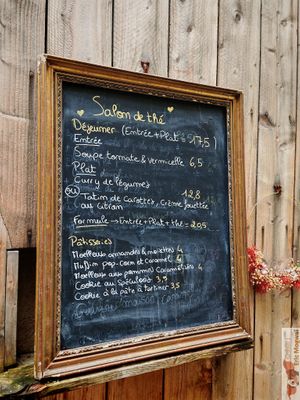 Salon de thé
Déjeuner (Entrée + Plat 17,5)
Entrée
Soupe tomate & vermicelle 6,5
Plat
Curry de légumes
ou 12,8
Tatin de Carottes, Crème fouettée
au Citron
Formule → Entrée + Plat + thé = 20,5
Pâtisseries
Moelleux amandes & myrtilles 4
Muffin pop-corn et Caramel 4
Moelleux aux pommes Caramélisées 4
Cookie au Spéculoos 3,5
Cookie à la pâte à tartiner 3,5
maison